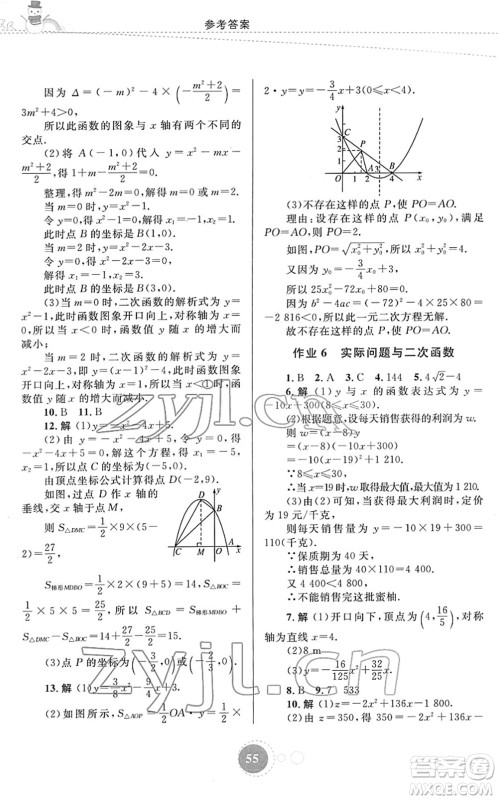 参考答案
因为 Δ=(-m)²-4×(-(m²+2)/2)=
3m²+4>0,
所以此函数的图象与 x 轴有两个不同的
交点.
(2)将 A(-1,0)代入 y=x²-mx-
(m²+2)/2,
整理,得 m²-2m=0. 解得 m=0 或 m=2.
当 m=0 时,y=x²-1.
令 y=0,得 x²-1=0. 解得 x₁=-1,x₂=1.
此时点 B 的坐标是 B(1,0).
当 m=2 时,y=x²-2x-3.
令 y=0,得 x²-2x-3=0.
解得 x₁=-1,x₂=3.
此时点 B 的坐标是 B(3,0).
(3)当 m=0 时,二次函数的解析式为 y=
x²-1,此时函数图象开口向上,对称轴为 x=
0,所以当 x<0 时,函数值 y 随 x 的增大
而减小.
当 m=2 时,二次函数的解析式为 y=
x²-2x-3,此时函数图象开口向上,对称轴为 x=
1,所以当 x<1 时,函数值 y 随 x 的增大而
减小.
10. B 11. B
12. 解 (1)
(2)由
所以点 C 的坐标为 C(-5,0).
由顶点坐标公式计算得点 D(-2,9).
如图,过 D 作 x 轴的
垂线,交 x 轴于点 M.
则 S△DMC=1/2×9×(5-
2)=27/2,
y
D
B
C
M
O
A
x
S梯形MDBO=1/2×2×(9+5)=14,S△BOC=
1/2×5×5=25/2,所以 S△BCD=S梯形MDBO+
S△DMC-S△BOC=14+27/2-25/2=15.
(3)点 P 的坐标为
13. 解 (1)y=3/8x²-9/4x+3.
(2)如图所示,S△AOP=1/2OA·y=1/2×
2·y=y=-3/4x+3(0≤x<4).
y
C
P
A
B
O
x
(3)不存在这样的点 P,使 PO=AO.
理由:设存在这样的点 P(x₀,y₀),使 PO=
AO,则 PO=2.
如图,PO=√(x₀²+y₀²)=2.
又因为 y₀=-3/4x₀+3,
所以 25x₀²-72x₀+80=0.
因为 b²-4ac=(-72)²-4×25×80=
-2 816<0,所以此一元二次方程无解.
故不存在这样的点 P,使 PO=AO.
作业 6 实际问题与二次函数
1. B 2. A 3. C 4. 144 5. 4√2-4
6. 解 (1)y 与 x 的函数表达式为 y=
-10x+300(8≤x≤30).
(2)根据题意,设每天销售获得的利润为 w,
则 w=(x-8)y=(x-8)(-10x+300)=
-10(x-19)²+1 210.
∵8≤x≤30,
∴当 x=19 时,w 取得最大值,最大值为 1 210.
(3)由(2)可知,当获得最大利润时,定价
为 19 元/千克,
则每天销售量为 y=-10×19+300=110
(千克).
∵保质期为 40 天,
∴销售总量为 40×110=4 400(千克).
又∵4 400<4 800,
∴不能销售完这批蜜柚.
7. 解 (1)开口向下,顶点为(4,16/5),对称
轴为直线 x=4.
(2)8 m
(3)y=-16/125x²+32/25x.
8. B 9. 7 533
10. 解 (1)z=-2x²+136x-1 800.
(2)由 z=350,得 350=-2x²+136x-
zyjl.cn
55